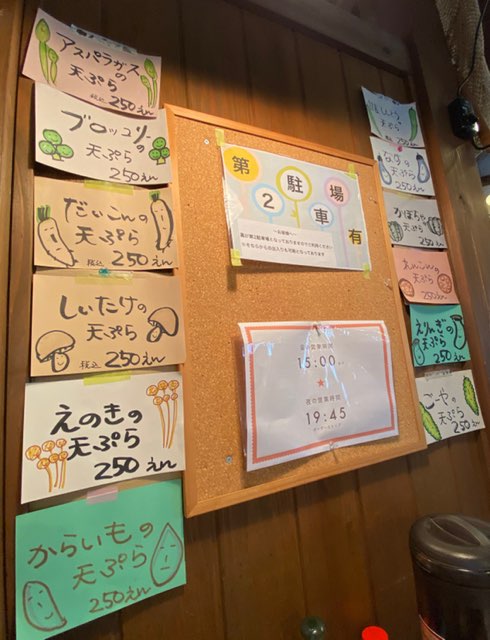 アスパラガスの
天ぷら
税込 250えん
ブロッコリーの
天ぷら
250えん
だいこんの
天ぷら
税込 250えん
しいたけの
天ぷら
税込 250えん
えのきの
天ぷら
250えん
からいもの
天ぷら
250えん
第2駐車場有
〜お客様へ〜
昼の営業時間
15:00
★
夜の営業時間
19:45
天ぷら
250えん
なすの
天ぷら
250えん
かぼちゃの
天ぷら
250えん
れんこんの
天ぷら
250えん
えりんぎの
天ぷら
250えん
ごーやの
天ぷら
250えん